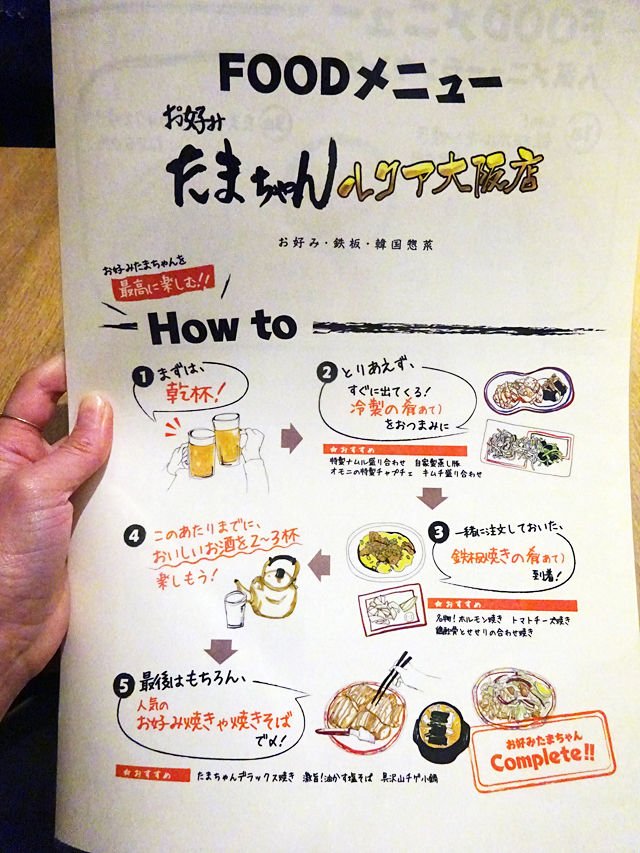 FOODメニュー
お好み
たまちゃんルクア大阪店
お好み・鉄板・韓国惣菜
お好みたまちゃんを
最高に楽しむ!!
How to
1 まずは、
乾杯!
2 とりあえず、
すぐに出てくる!
冷製の肴(あて)
をおつまみに
★おすすめ
特製ナムル盛り合わせ 自家製蒸し豚
オモニの特製チャプチェ キムチ盛り合わせ
3 一緒に注文しておいた、
鉄板焼きの肴(あて)
到着!
★おすすめ
名物!ホルモン焼き トマトチーズ焼き
鶏軟骨とせせりの合わせ焼き
4 このあたりまでに、
おいしいお酒を2〜3杯
楽しもう!
5 最後はもちろん、
人気の
お好み焼きや焼きそば
で〆!
★おすすめ
たまちゃんデラックス焼き 激旨!油かす塩そば 具沢山チゲ小鍋
お好みたまちゃん
Complete!!